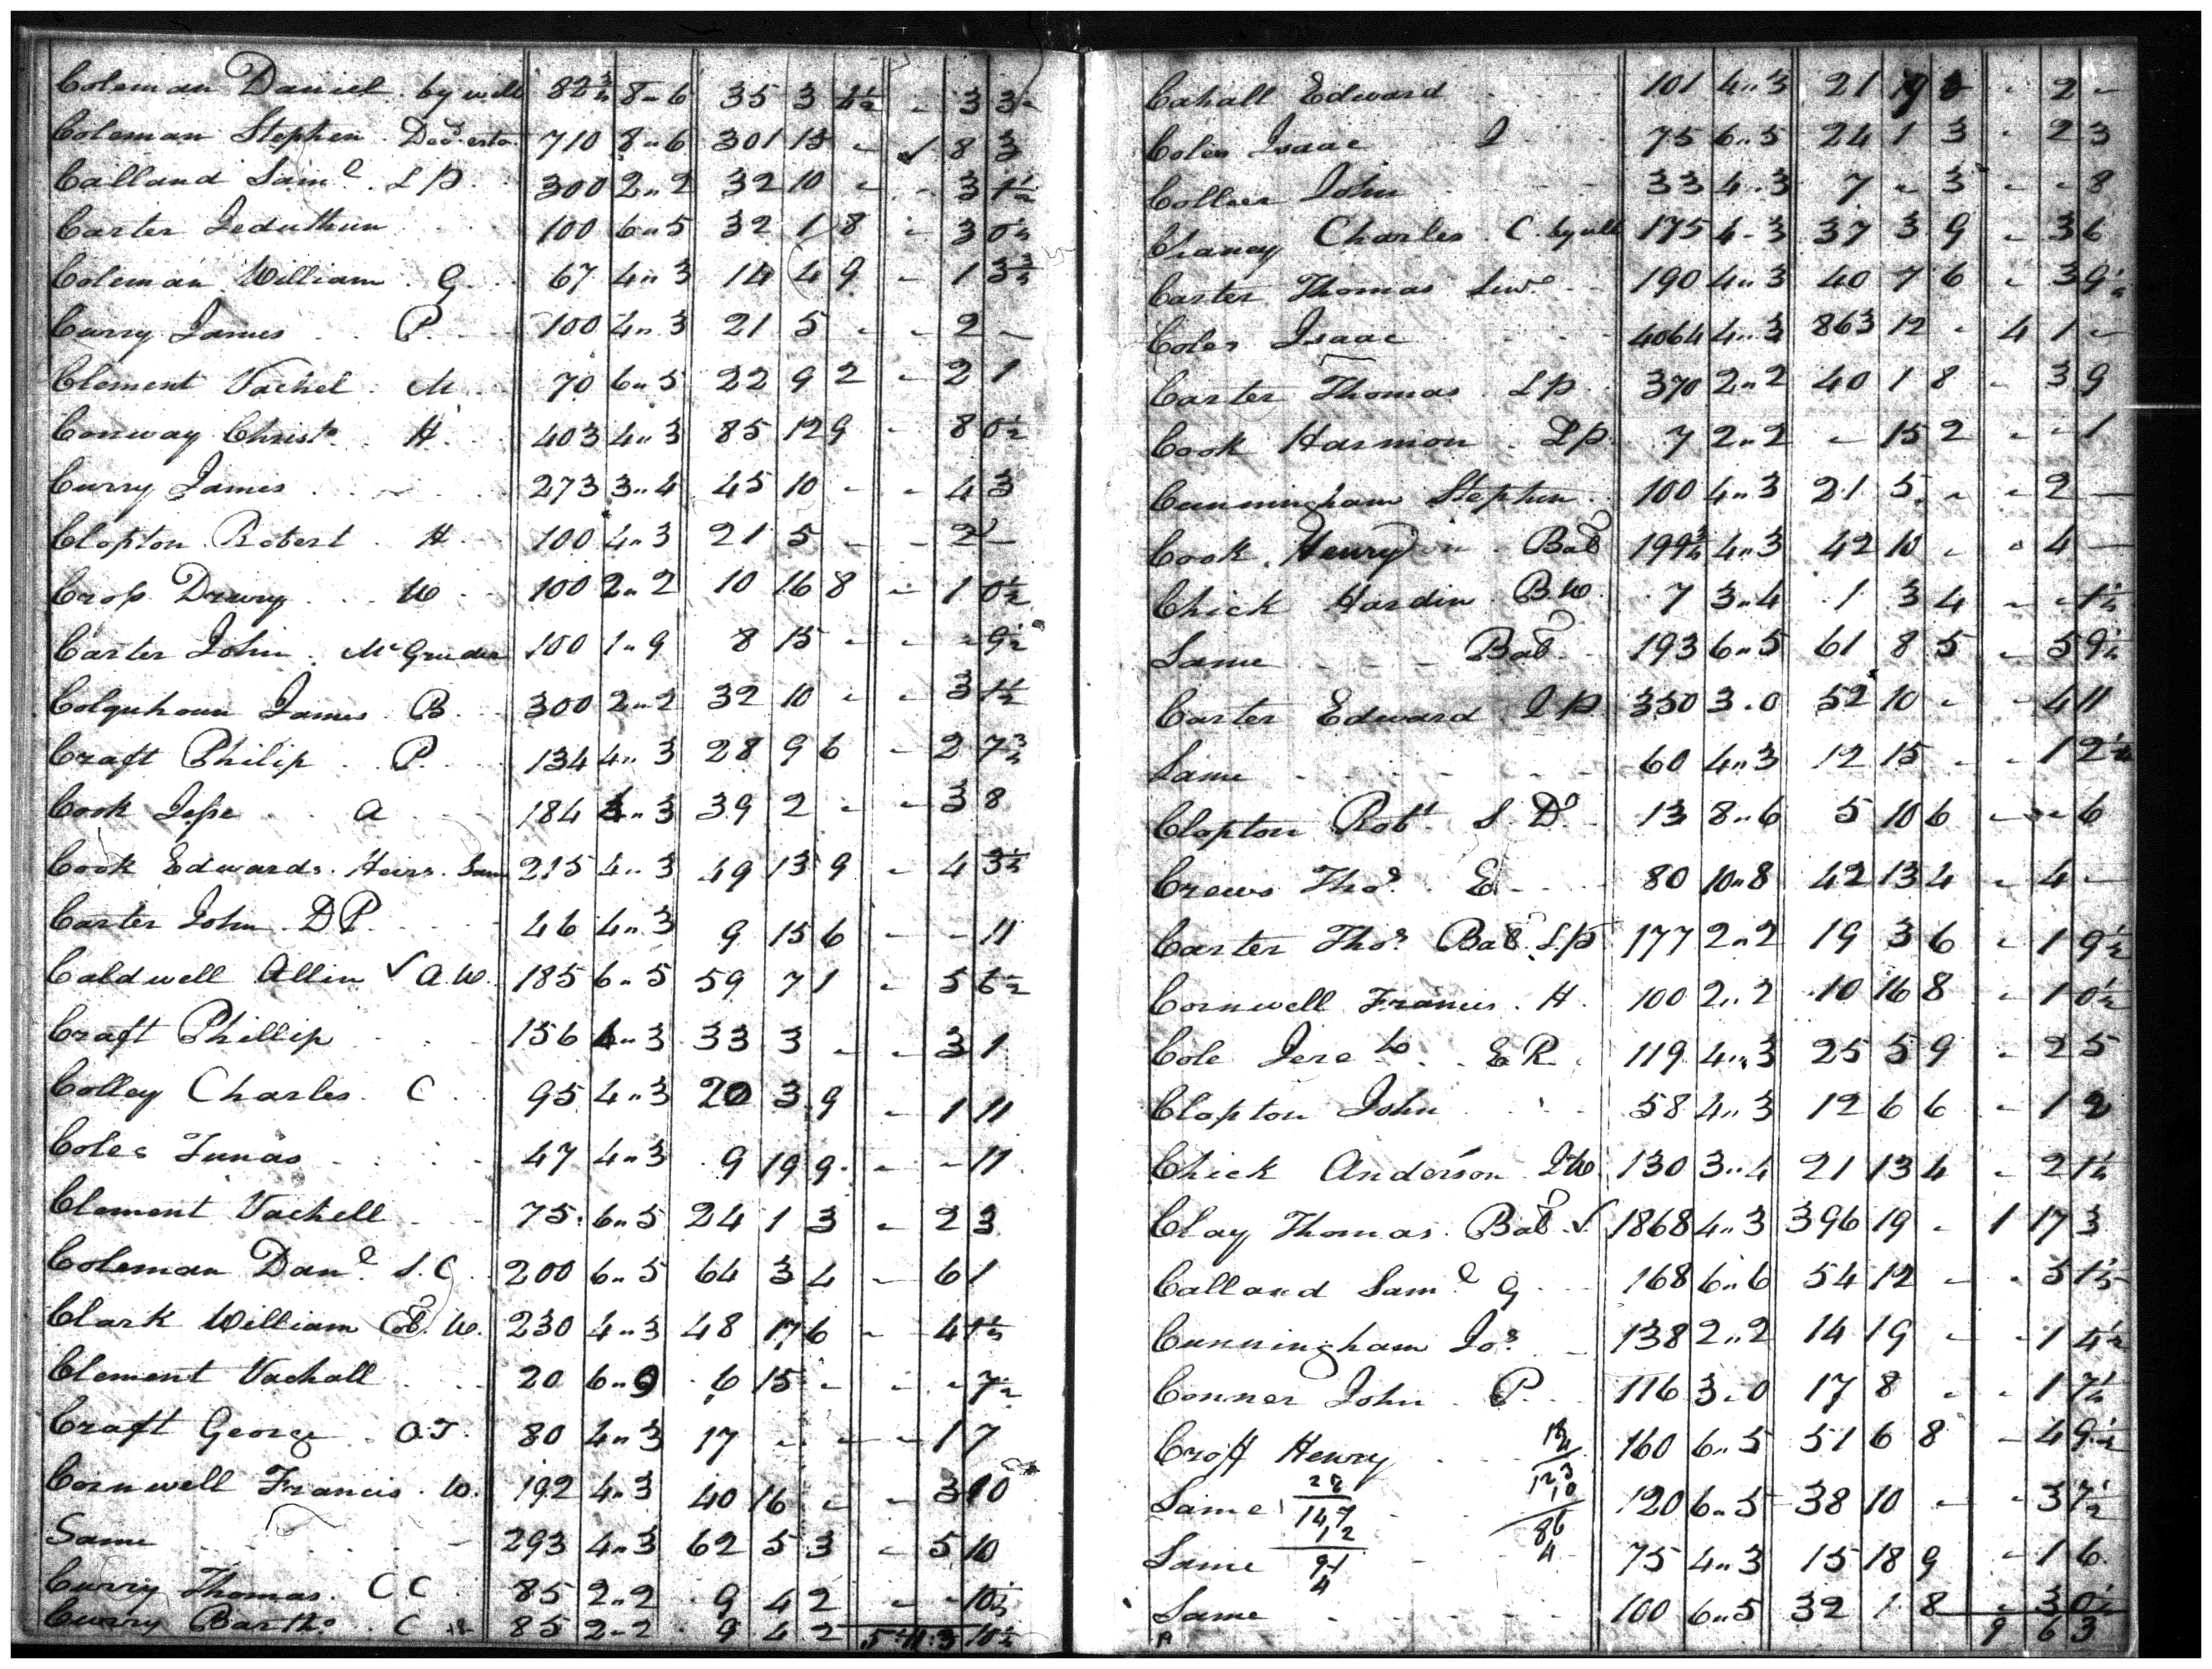 Coleman Daniel by will 82¾ 8"6 35 3 4½ - 3 3¾
Coleman Stephen Decd. esta 710 8"6 301 15 - ✓1 8 3
Calland Saml. L P. 300 2"2 32 10 - - 3 1½
Carter Jeduthun 100 6"5 32 1 8 - 3 0½
Coleman William G. 67 4"3 14 4 9 - 1 3¾
Curry James P. 100 4"3 21 5 - - 2 -
Clement Vachel M 70 6"5 22 9 2 - 2 1
Conway Christo. H. 403 4"3 85 12 9 - 8 0½
Curry James 273 3"4 45 10 - - 4 3
Clopton Robert H. 100 4"3 21 5 - - 2 -
Cross Drury W 100 2"2 10 16 8 - 1 0½
Carter John McGruder 100 1"9 8 15 - - - 9½
Colquhoun James B. 300 2"2 32 10 - - 3 1½
Craft Philip P. 134 4"3 28 9 6 - 2 7¾
Cook Jesse a 184 4"3 39 2 - - 3 8
Cook Edwards Heirs. Sam 215 4"3 49 13 9 - 4 3½
Carter John D P. 46 4"3 9 15 6 - - 11
Caldwell Allin ✓ A. W. 185 6"5 59 7 1 - 5 6½
Craft Phillip 156 4"3 33 3 - - 3 1
Colley Charles C 95 4"3 20 3 9 - 1 11
Coles 47 4"3 9 19 9 - - 11
Clement Vachell 75 6"5 24 1 3 - 2 3
Coleman Danl. S. C. 200 6"5 64 3 4 - 6 1
Clark William Cob. W. 230 4"3 48 17 6 - 4 1½
Clement Vachall 20 6"9 6 15 - - - 7½
Craft George O.T. 80 4"3 17 - - - 1 7
Cornwell Francis W. 192 4"3 40 16 - - 3 10
Same 293 4"3 62 5 3 - 5 10
Curry Thomas C C 85 2"2 9 4 2 - - 10½
Curry Bartho. C 85 2"2 9 4 2 5 11 3 10½
Cahall Edward 101 4"3 21 9 3 - 2 -
Coles Isaac I 75 6"5 24 1 3 - 2 3
Collier John 33 4"3 7 - 3 - - 8
Chaney Charles C. by will 175 4"3 37 3 9 - 3 6
Carter Thomas 190 4"3 40 7 6 - 3 9½
Coles Isaac 4064 4"3 863 12 - 4 1 -
Carter Thomas L P. 370 2"2 40 1 8 - 3 9
Cook Harmon L P. 7 2"2 - 15 2 - - 1
Cunningham Stephen 100 4"3 21 5 - - 2 -
Cook Henry Bad 199¾ 4"3 42 10 - - 4 -
Chick Hardin B. W. 7 3"4 1 3 4 - - 1½
Same Bad 193 6"5 61 8 5 - 5 9½
Carter Edward L P. 350 3"0 52 10 - - 4 11
Same 60 4"3 12 15 - - 1 2½
Clopton Robt. S. D. 13 8"6 5 10 6 - - 6
Crews Thos. E 80 10"8 42 13 4 - 4 -
Carter Thos. Bad L P 177 2"2 19 3 6 - 1 9½
Cornwell Francis H. 100 2"2 10 16 8 - 1 0½
Cole Jereh. E R. 119 4"3 25 5 9 - 2 5
Clopton John 58 4"3 12 6 6 - 1 2
Chick Anderson I W. 130 3"4 21 13 4 - 2 1½
Clay Thomas Bad ✓ 1868 4"3 396 19 - 1 17 3
Calland Saml. G 168 6"6 54 12 - - 5 1½
Cunningham Jos. 138 2"2 14 19 - - 1 4½
Conner John P. 116 3"0 17 8 - - 1 7½
Croff Henry 160 6"5 51 6 8 - 4 9½
Same 28 147 12 120 6"5 38 10 - - 3 7½
Same 91 4 75 4"3 15 18 9 - 1 6
Same 100 6"5 32 1 8 - 3 0½
9 6 3